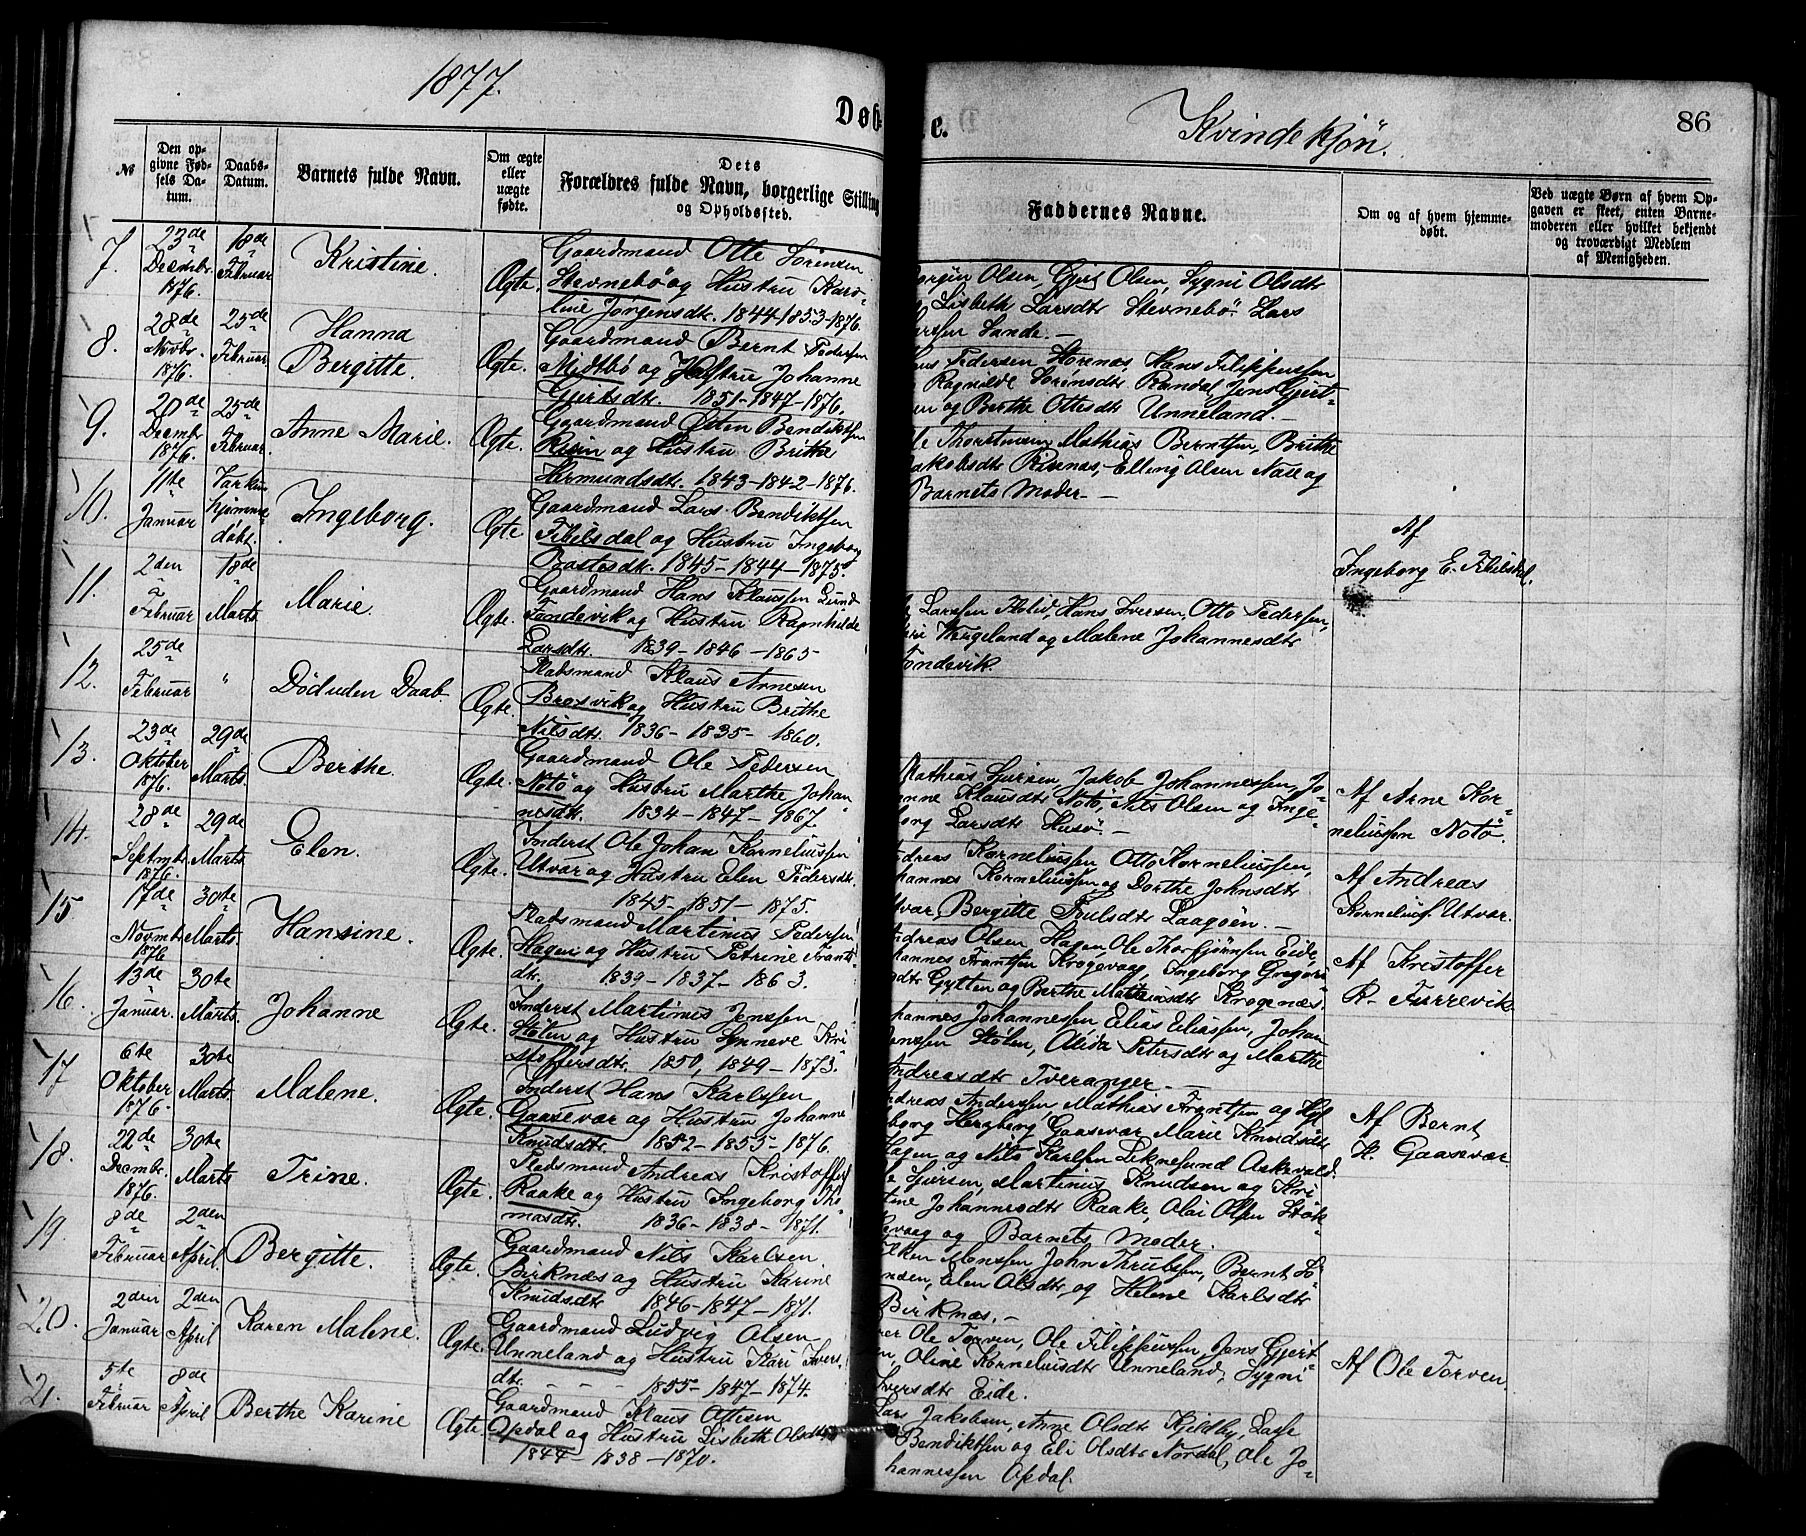 1877.
Døb-
e.
Kvindekjön.
86
№
Den op-
givne Fød-
sels Da-
tum.
Daabs-
Datum.
Barnets fulde Navn.
Om ægte
eller
uægte
fødte.
Dets
Forældres fulde Navn, borgerlige Stilling
og Opholdssted.
Faddernes Navne.
Om og af hvem hjemme-
døbt.
Ved uægte Børn af hvem Op-
gaven er skeet, enten Barne-
moderen eller hvilket bekjendt
og troværdigt Medlem
af Menigheden.
7.
23de
Decembr.
1876.
18de
Februar
Kristine.
Ægte.
Gaardmand Otte Sörensen
Stevnebö og Hustru Karo-
line Jørgensdtr. 1844-1853-1876.
Olsen, Gjert Olsen, Sygni Olsdtr
Lisbeth Larsdtr Stevnebö. Lars
Sande.—
8.
28de
Novbr.
1876.
25de
Februar
Hanna
Bergitte.
Ægte.
Gaardmand Bernt Pedersen
Midtbö og Hustru Johanne
Gjertsdtr. 1851-1847-1876.
Pedersen Storenæs, Hans Filippussen
Ragnilde Sörensdtr Randal, Jens Gjert-
en og Berthe Ottesdtr Unneland.—
9.
20de
Decembr
1876.
25de
Februar.
Anne Marie.
Ægte.
Gaardmand Østen Bendiktsen
Risin og Hustru Brithe
Hermundsdtr. 1843-1842-1876.
Mathias Berntsen, Brithe
Jakobsdtr Risnæs, Elling Olsen Nase og
Barnets Moder.—
10.
11te
Januar
hjemme
döbt.
Ingeborg.
Ægte
Gaardmand Lars Bendiktsen
Tibilsdal og Hustru Ingeborg
1845-1844-1875.
Af
Ingeborg E. Tibilsdal.
11.
2den
Februar
18de
Marts.
Marie.
Ægte.
Gaardmand Hans Klaussen Lund
Tandevik og Hustru Ragnhilde
Larsdtr. 1839-1846-1865
Larssen Hans Iversen, Otto Pedersen,
og Malene Johannesdtr
12.
25de
Februar
"
Död uden Daab
Ægte.
Pladsmand Klaus Arnesen
Brosvik og Hustru Brithe
Nilsdtr. 1836-1835-1860.
13.
23de
Oktober
1876.
29de
Marts.
Berthe.
Ægte.
Gaardmand Ole Pedersen
Notö og Hustru Marthe Johan
nesdtr. 1834-1847-1867
Mathias Sjursen, Jakob Johannessen, Jo-
anne Klausdtr Notö, Nils Olsen og Inge-
borg Larsdtr Husö.—
Af Arne Kor-
neliussen Notö.
14.
28de
Septmbr.
1876.
29de
Marts.
Elen.
Ægte.
Inderst Ole Johan Korneliussen
Utvær og Hustru Elen Pedersdtr.
1845-1851-1875.
Andreas Korneliussen, Otto Korneliussen,
Johannes Korneliussen og Dorthe Johnsdtr
Utvær, Bergitte Trulsdtr Laagöen.—
Af Andreas
Korneliuss. Utvær.
15
17de
Novmbr.
1876
30te
Marts.
Hansine.
Ægte.
Pladsmand Martinus Pedersen
Hagen og Hustru Petrine Frants-
dtr. 1839-1837-1863.
Andreas Olsen Hagen, Ole Thorfinnsen Eide,
Johannes Frantsen Krogevaag, Ingeborg Gregori-
usdtr Gytten og Berthe Mathiasdtr Krogenæs.
Af Kristoffer
R. Furrevik
16.
13de
Januar.
30te
Marts.
Johanne
Ægte.
Inderst Martinus Jenssen
Stölen og Hustru Synneve Kri
stoffersdtr. 1850, 1849-1873.
Johannes Johannessen, Elias Eliassen, Johan
Jenssen Stölen, Olida Petersdtr og Marthe
Andreasdtr Tveranger.—
17
6te
Oktober
1876.
30te
Marts.
Malene.
Ægte.
Inderst Hans Karlssen
Gaasevær og Hustru Johanne
Knudsdtr. 1852-1855-1876.
Andreas Anderssen Mathias Frantsen og
Gaasevær Marie Knudsdtr
Hagen og Nils Karlsen Leknesund Askevold.
Af Bernt
H. Gaasevær
18.
22de
Decembr.
1876.
30te
Marts
Trine.
Ægte.
Pladsmand Andreas Kristoffers
Raake og Hustru Ingeborg Tho
masdtr. 1836-1838-1871.
Sjursen, Martinus Knudsen og Kri
stine Johannesdtr Raake, Olai Olsen Stöle
vaag og Barnets Moder.
19.
8de
Februar
2den
April
Bergitte.
Ægte.
Gaardmand Nils Karlsen
Birknæs og Hustru Karine
Knudsdtr 1846-1847-1871.
Monssen John Bernt Sö
rensen, Elen Olsdtr, og Helene Karlsdtr
Birknæs.—
20.
2den
Januar
2den
April
Karen Malene.
Ægte.
Gaardmand Ludvig Olsen
Unneland og Hustru Kari Ivers-
dtr. 1855-1847-1874.
Ole Torven, Ole Filippussen, Jens Gjert
sen, Oline Korneliusdtr Unneland, Sygni
Iversdtr Eide.
Af Ole Torven.
21.
5te
Februar
8de
April
Berthe Karine
Ægte.
Gaardmand Klaus Ottesen
Opdal og Hustru Lisbeth Olsdtr
1844-1838-1870.
Lars Jakobsen, Anne Olsdtr Kjeldby, Lasse
Bendiktsen og Eli Olsdtr Nordal, Ole Jo-
hannessen Opdal.